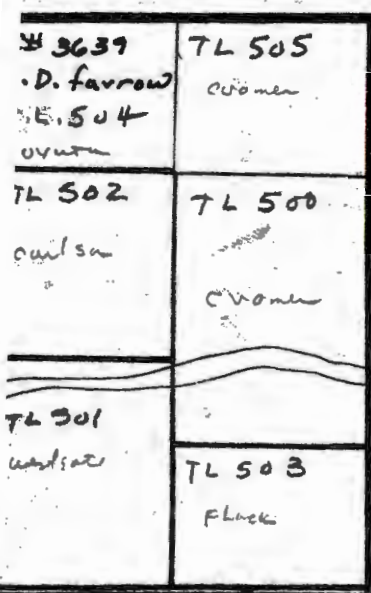 # 3639
.D. farrow
.E. 504
TL 505
cromer
TL 502
carlson
TL 500
cromer
TL 501
westgate
TL 503
Flack